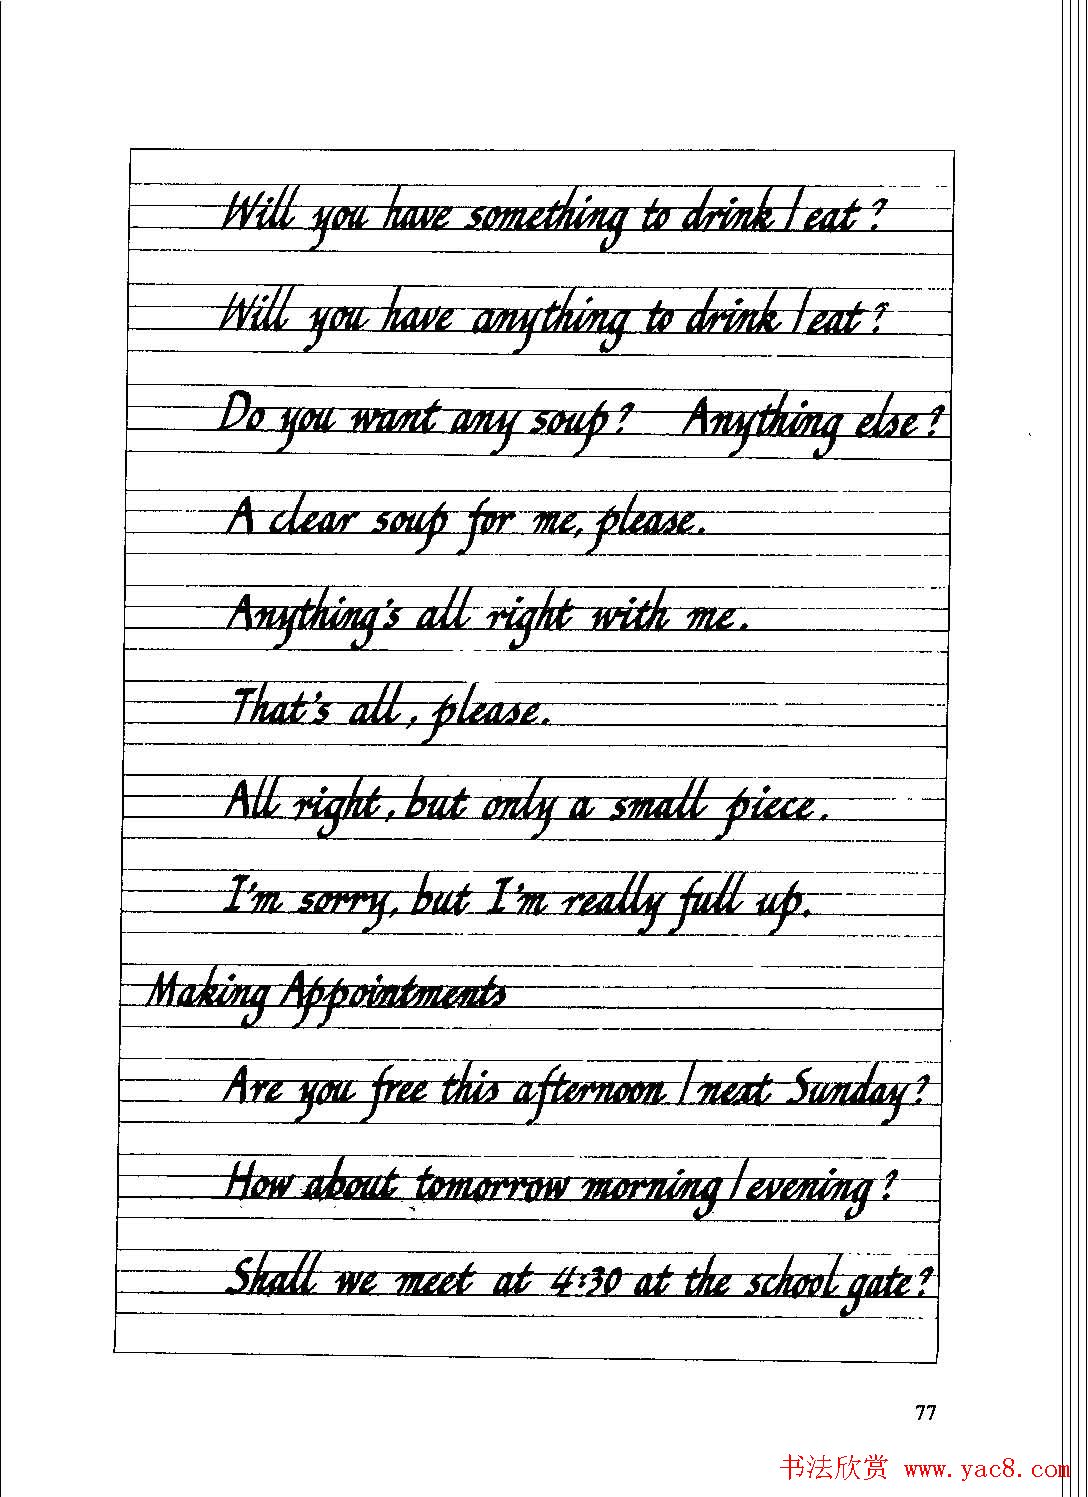 Will you have something to drink / eat ?
Will you have anything to drink / eat ?
Do you want any soup ? Anything else ?
A clear soup for me, please.
Anything's all right with me.
That's all, please.
All right, but only a small piece.
I'm sorry, but I'm really full up.
Making Appointments
Are you free this afternoon / next Sunday ?
How about tomorrow morning / evening ?
Shall we meet at 4:30 at the school gate ?
77
书法欣赏 www.yac8.com